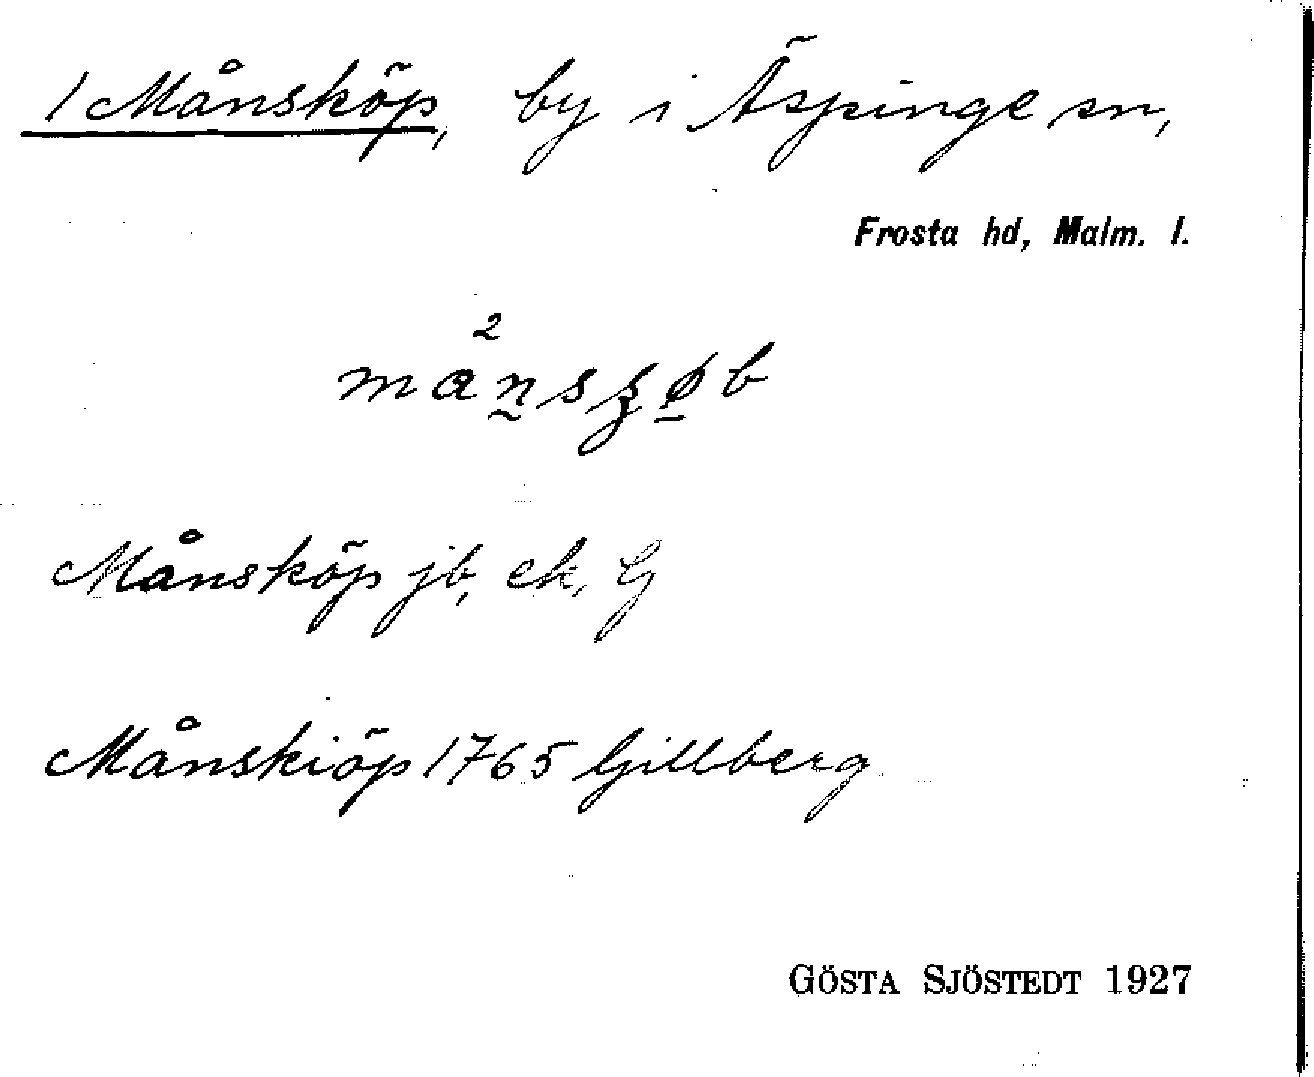 1 Månsköp, by i Äspinge sn,
Frosta hd, Malm. l.
Månsköp jb, ek, G
Månskiöp 1765 Gillberg
GÖSTA SJÖSTEDT 1927